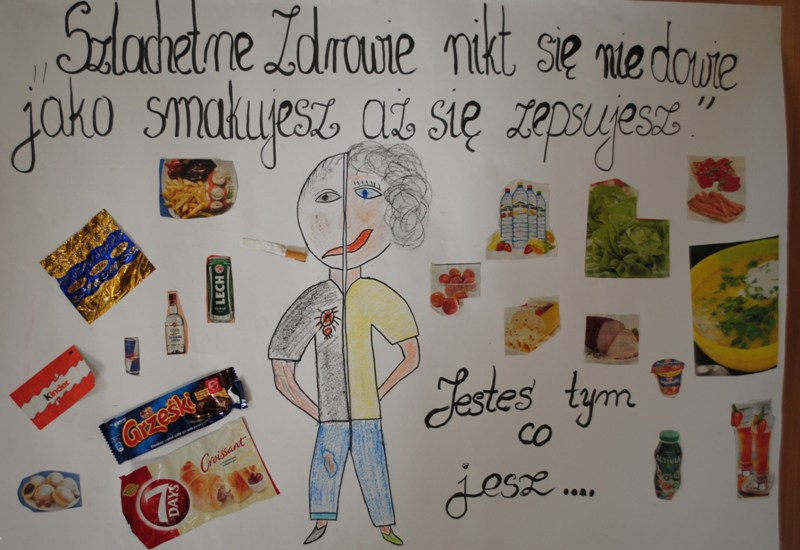 „Szlachetne Zdrowie nikt się nie dowie
jako smakujesz aż się zepsujesz."
LECH
Kinder
Grześki
Croissant
7
DAYS
ACTIVIA
Jesteś tym
co
jesz....